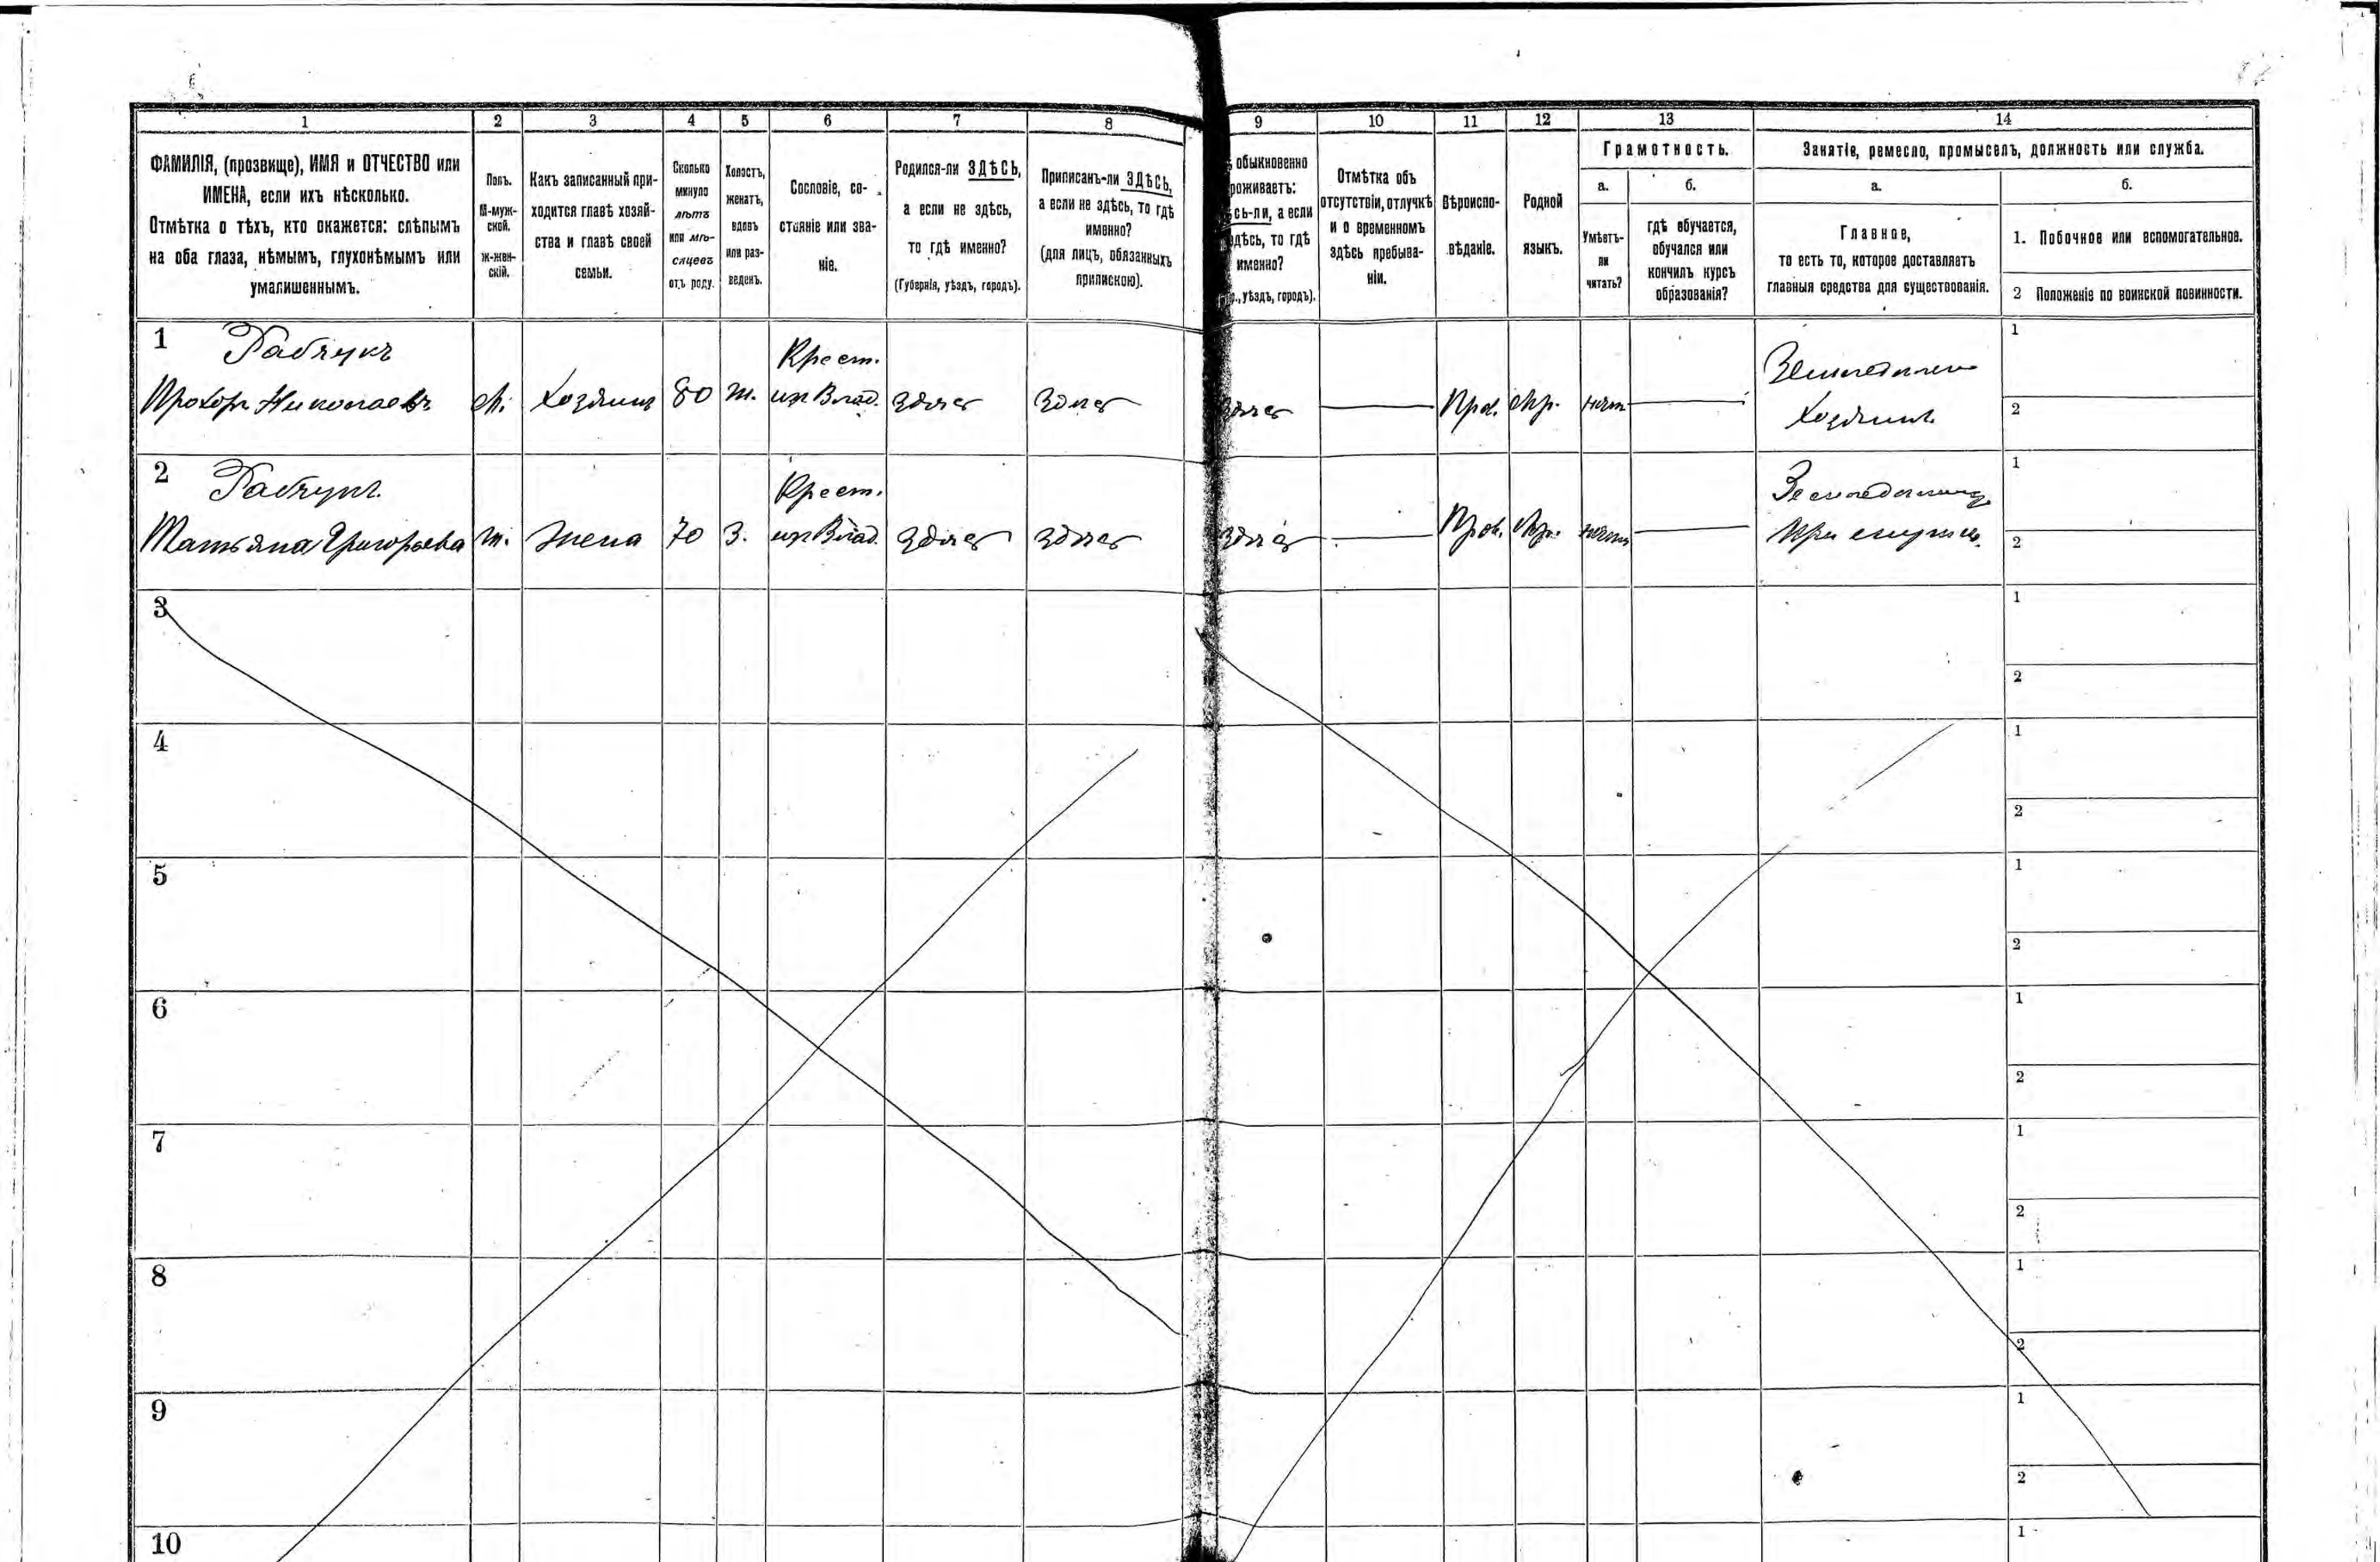 1 2 3 4 5 6 7 8 9 10 11 12 13 14
ФАМИЛІЯ, (прозвище), ИМЯ и ОТЧЕСТВО или
ИМЕНА, если ихъ нѣсколько.
Отмѣтка о тѣхъ, кто окажется: слѣпымъ
на оба глаза, нѣмымъ, глухонѣмымъ или
умалишеннымъ.
Полъ.
М-муж-
ской.
ж-жен-
скій.
Какъ записанный при-
ходится главѣ хозяй-
ства и главѣ своей
семьи.
Сколько
минуло
лѣтъ
или мѣ-
сяцевъ
отъ роду.
Холостъ,
женатъ,
вдовъ
или раз-
веденъ.
Сословіе, со-
стояніе или зва-
ніе.
Родился-ли ЗДѢСЬ,
а если не здѣсь,
то гдѣ именно?
(Губернія, уѣздъ, городъ).
Приписанъ-ли ЗДѢСЬ,
а если не здѣсь, то гдѣ
именно?
(для лицъ, обязанныхъ
припискою).
обыкновенно
роживаетъ:
сь-ли, а если
здѣсь, то гдѣ
именно?
уѣздъ, городъ).
Отмѣтка объ
отсутствіи, отлучкѣ
и о временномъ
здѣсь пребыва-
ніи.
Вѣроиспо-
вѣданіе.
Родной
языкъ.
Грамотность.
а.
Умѣетъ-
ли
читать?
б.
гдѣ обучается,
обучался или
кончилъ курсъ
образованія?
Занятіе, ремесло, промыселъ, должность или служба.
а.
Главное,
то есть то, которое доставляетъ
главныя средства для существованія.
б.
1. Побочное или вспомогательное.
2 Положеніе по воинской повинности.
1 Рабчукъ Крест. Земледелие 1
Прохоръ Николаевъ М. Хозяинъ 80 ж. из Влад. здесь здесь здесь Прав. Мр. нет Хозяинъ 2
2 Рабчукъ Крест. 1
Татьяна Григорьева ж. жена 70 З. из Влад. здесь здесь здесь Прав. Мр. нет При 2
3 1
2
4 1
2
5 1
2
6 1
2
7 1
2
8 1
2
9 1
2
10 1